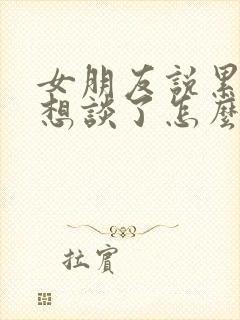 女朋友說累
想談了怎麼
拉賓